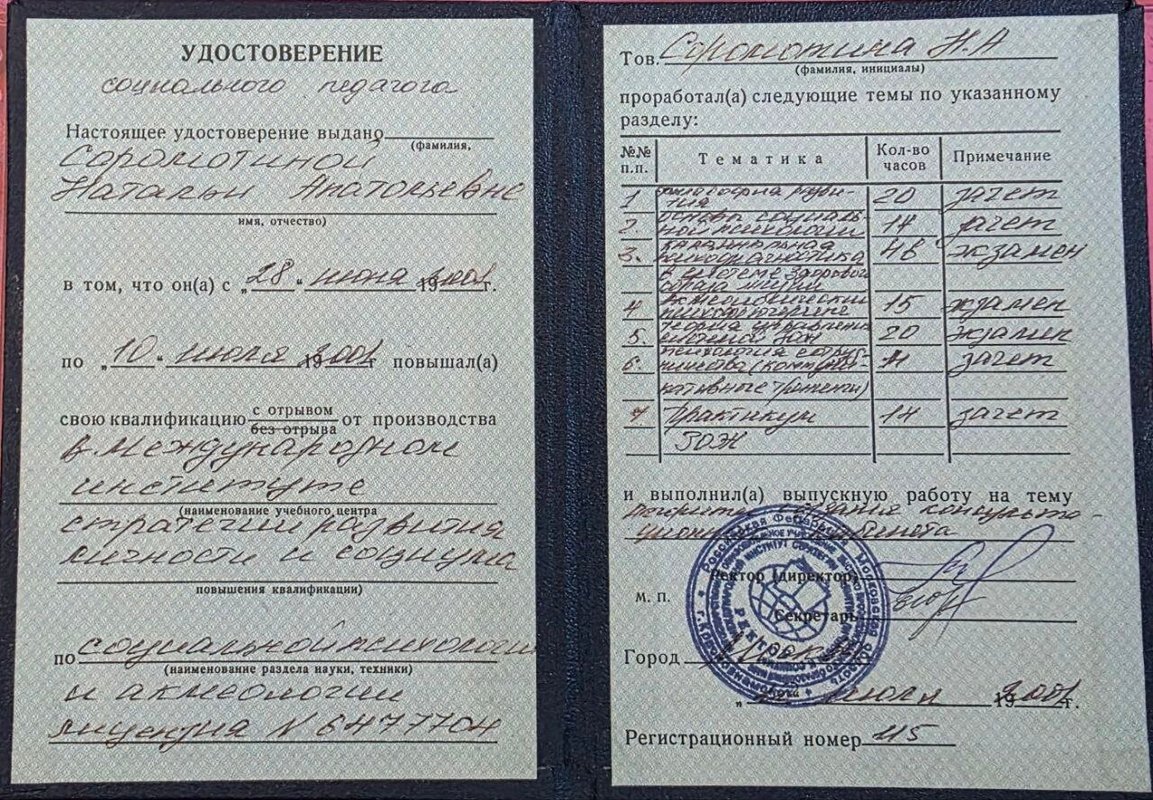 УДОСТОВЕРЕНИЕ
социального педагога
Настоящее удостоверение выдано
(фамилия,
Соромотиной
Наталье Анатольевне
имя, отчество)
в том, что он(а) с „28“ июня 2001 г.
по „10“ июля 2001 г повышал(а)
свою квалификацию с отрывом от производства
без отрыва
в Международном
институте
(наименование учебного центра
стратегии развития
личности и социума
повышения квалификации)
по социальной психологии
(наименование раздела науки, техники)
и акмеологии
лицензия N 6477704
Тов. Соромотина Н.А
(фамилия, инициалы)
проработал(а) следующие темы по указанному
разделу:
№№ п.п. Тематика Кол-во часов Примечание
1 философия развития 20 зачет
2. основы социальной психологии 14 зачет
3. психодиагностика 48 экзамен
в системе здорового
образа жизни
4 15 экзамен
5. теория управления ЗОЖ 20 экзамен
6. психология зачет
7 Практикум 14 зачет
ЗОЖ
и выполнил(а) выпускную работу на тему
кабинета
Ректор (директор)
М. П.
Секретарь
Город
июля 2001 г.
Регистрационный номер 115